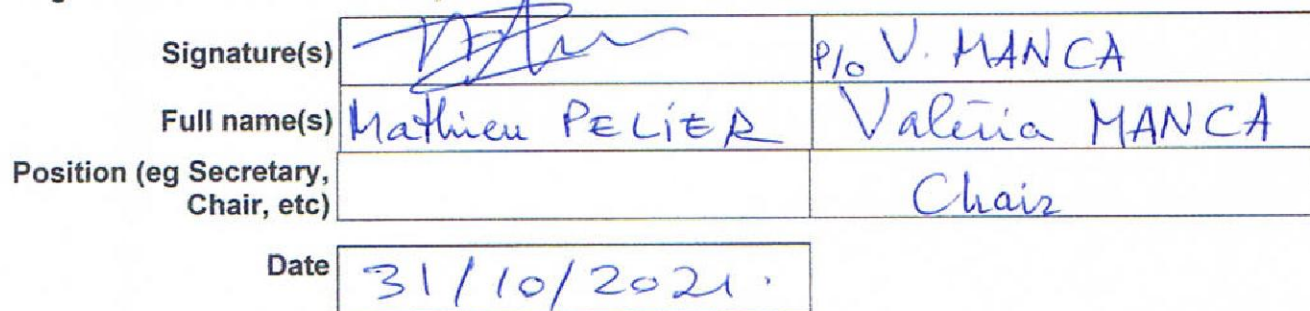 Signature(s) P/o V. MANCA
Full name(s) Mathieu PELIER Valéria MANCA
Position (eg Secretary,
Chair, etc) Chair
Date 31/10/2021.